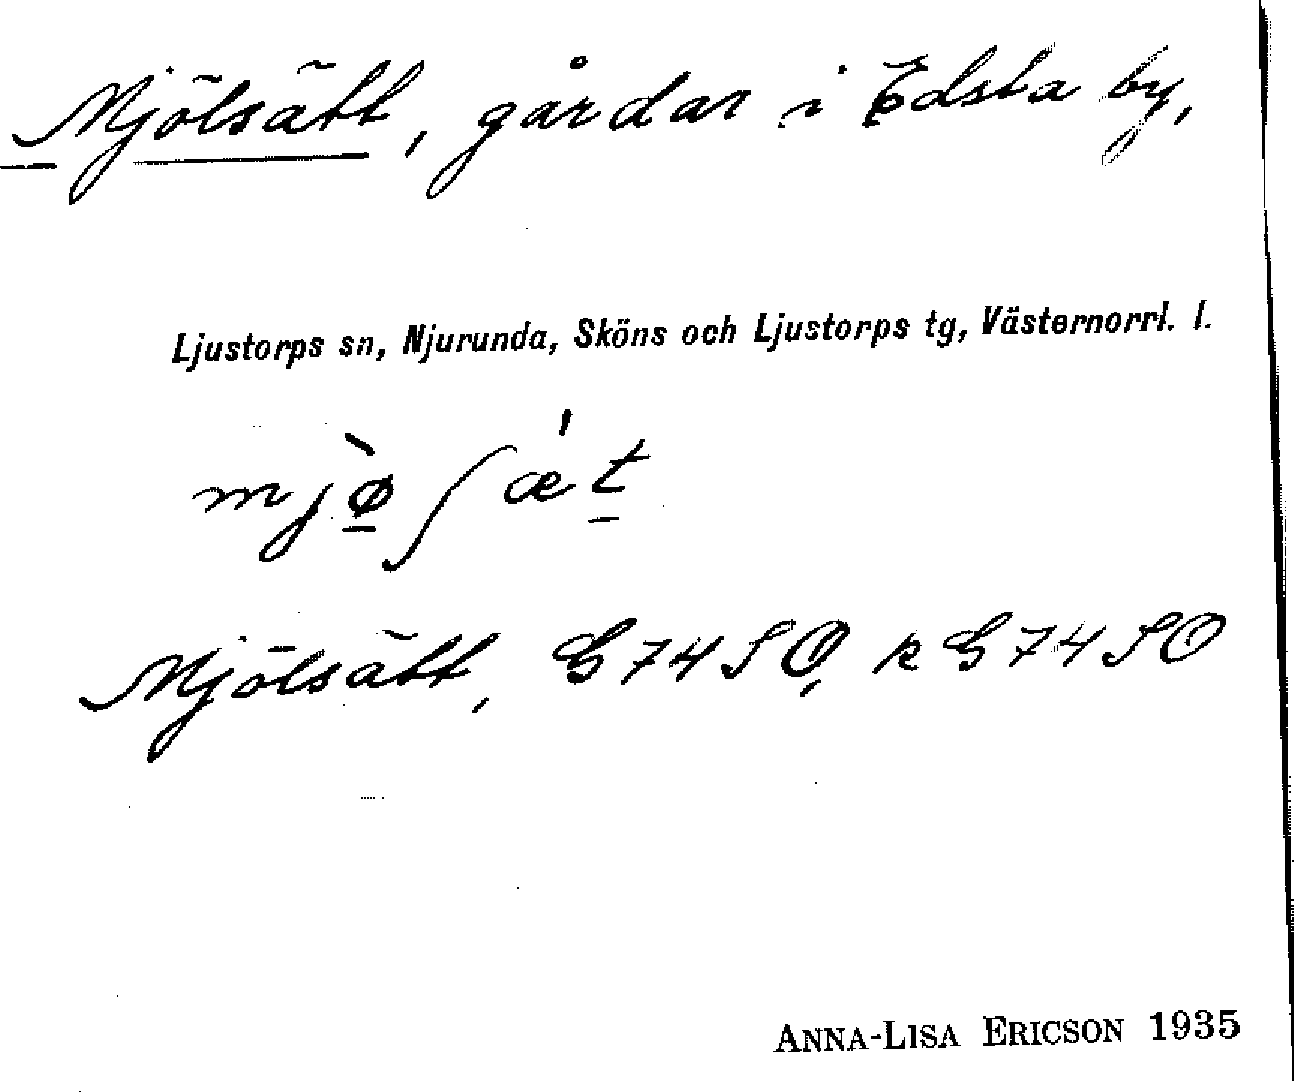 Mjölsätt, gårdar i Edsta by,
Ljustorps sn, Njurunda, Sköns och Ljustorps tg, Västernorrl. l.
mjø̀ʃǽt
Mjölsätt, G74SO, k G74SO
ANNA-LISA ERICSON 1935